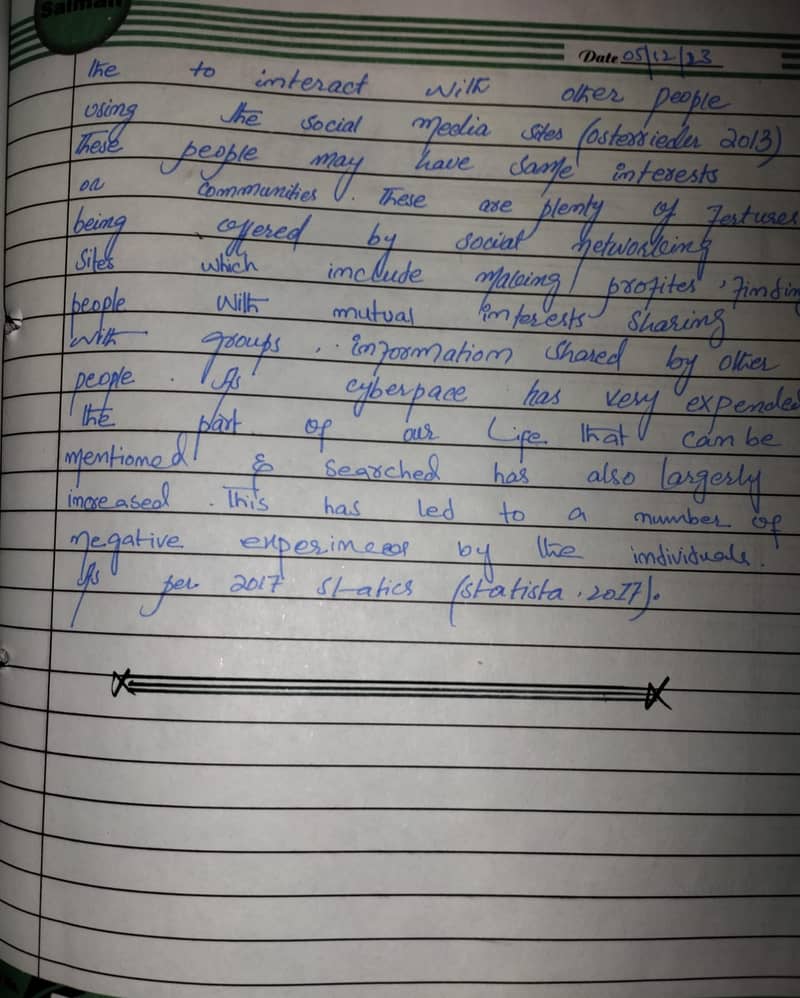 Salman
Date 05/12/23
the to interact with other people
using the social media sites (osterrieder 2013)
These people may have same interests
or communities. These are plenty of festures
being offered by social networking
sites which include making profites, findin
people with mutual interests sharing
with groups, information shared by other
people. As cyberpace has very expended
the part of our life that can be
mentioned & searched has also largerly
increased. This has led to a number of
negative by the individuals.
As per 2017 statics (statista, 2017).